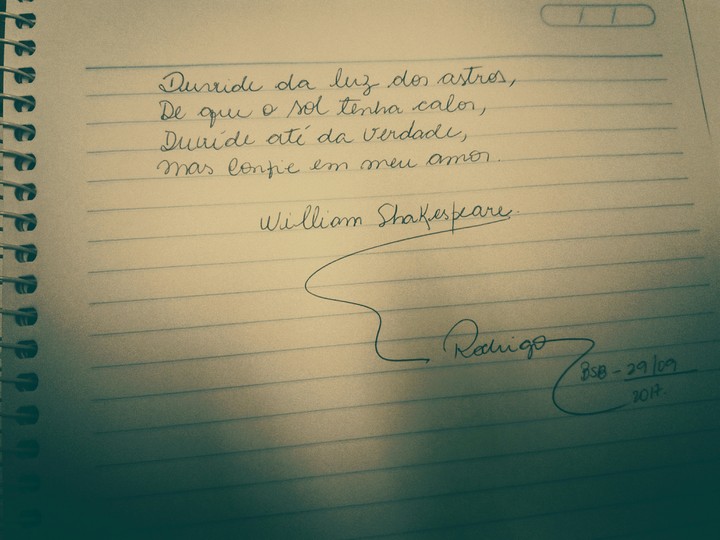 Duvide da luz dos astros,
De que o sol tenha calor,
Duvide até da verdade,
Mas confie em meu amor.
William Shakespeare.
Rodrigo
BSB - 29/09
2017.